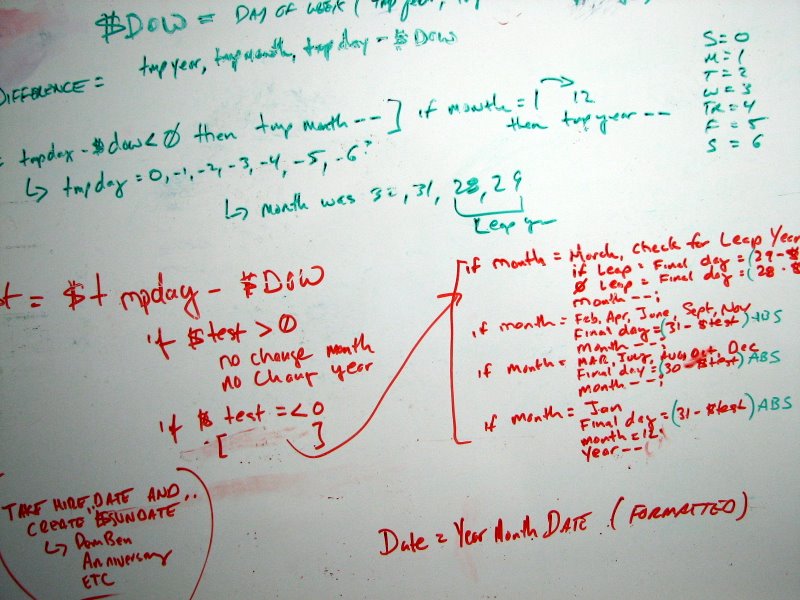 $DOW = DAY OF WEEK (tmp year,
DIFFERENCE = tmpyear, tmpmonth, tmpday - $DOW
= tmpday - $dow < 0 then tmp month -- ] if month = 1 12
then tmpyear --
↳ tmpday = 0, -1, -2, -3, -4, -5, -6?
↳ month was 30, 31, 28, 29
Leap yr
S = 0
M = 1
T = 2
W = 3
TR = 4
F = 5
S = 6
st = $tmpday - $DOW
if $test > 0
no change month
no chang year
if $ test = < 0
[ ]
if month = March, check for Leap Year
if Leap = Final day = (29 - $
0 Leap = Final day = (28 - $
month --;
if month = Feb, Apr, June, Sept, Nov
Final day = (31 - $test) ABS
month --;
if month = MAR, Oct, Dec
Final day = (30 - $test) ABS
month --;
if month = Jan
Final day = (31 - $test) ABS
month = 12;
year --;
TAKE HIRE DATE AND
CREATE $SUNDATE
↳ PamBen
Anniversary
ETC
Date = Year Month DATE (FORMATTED)